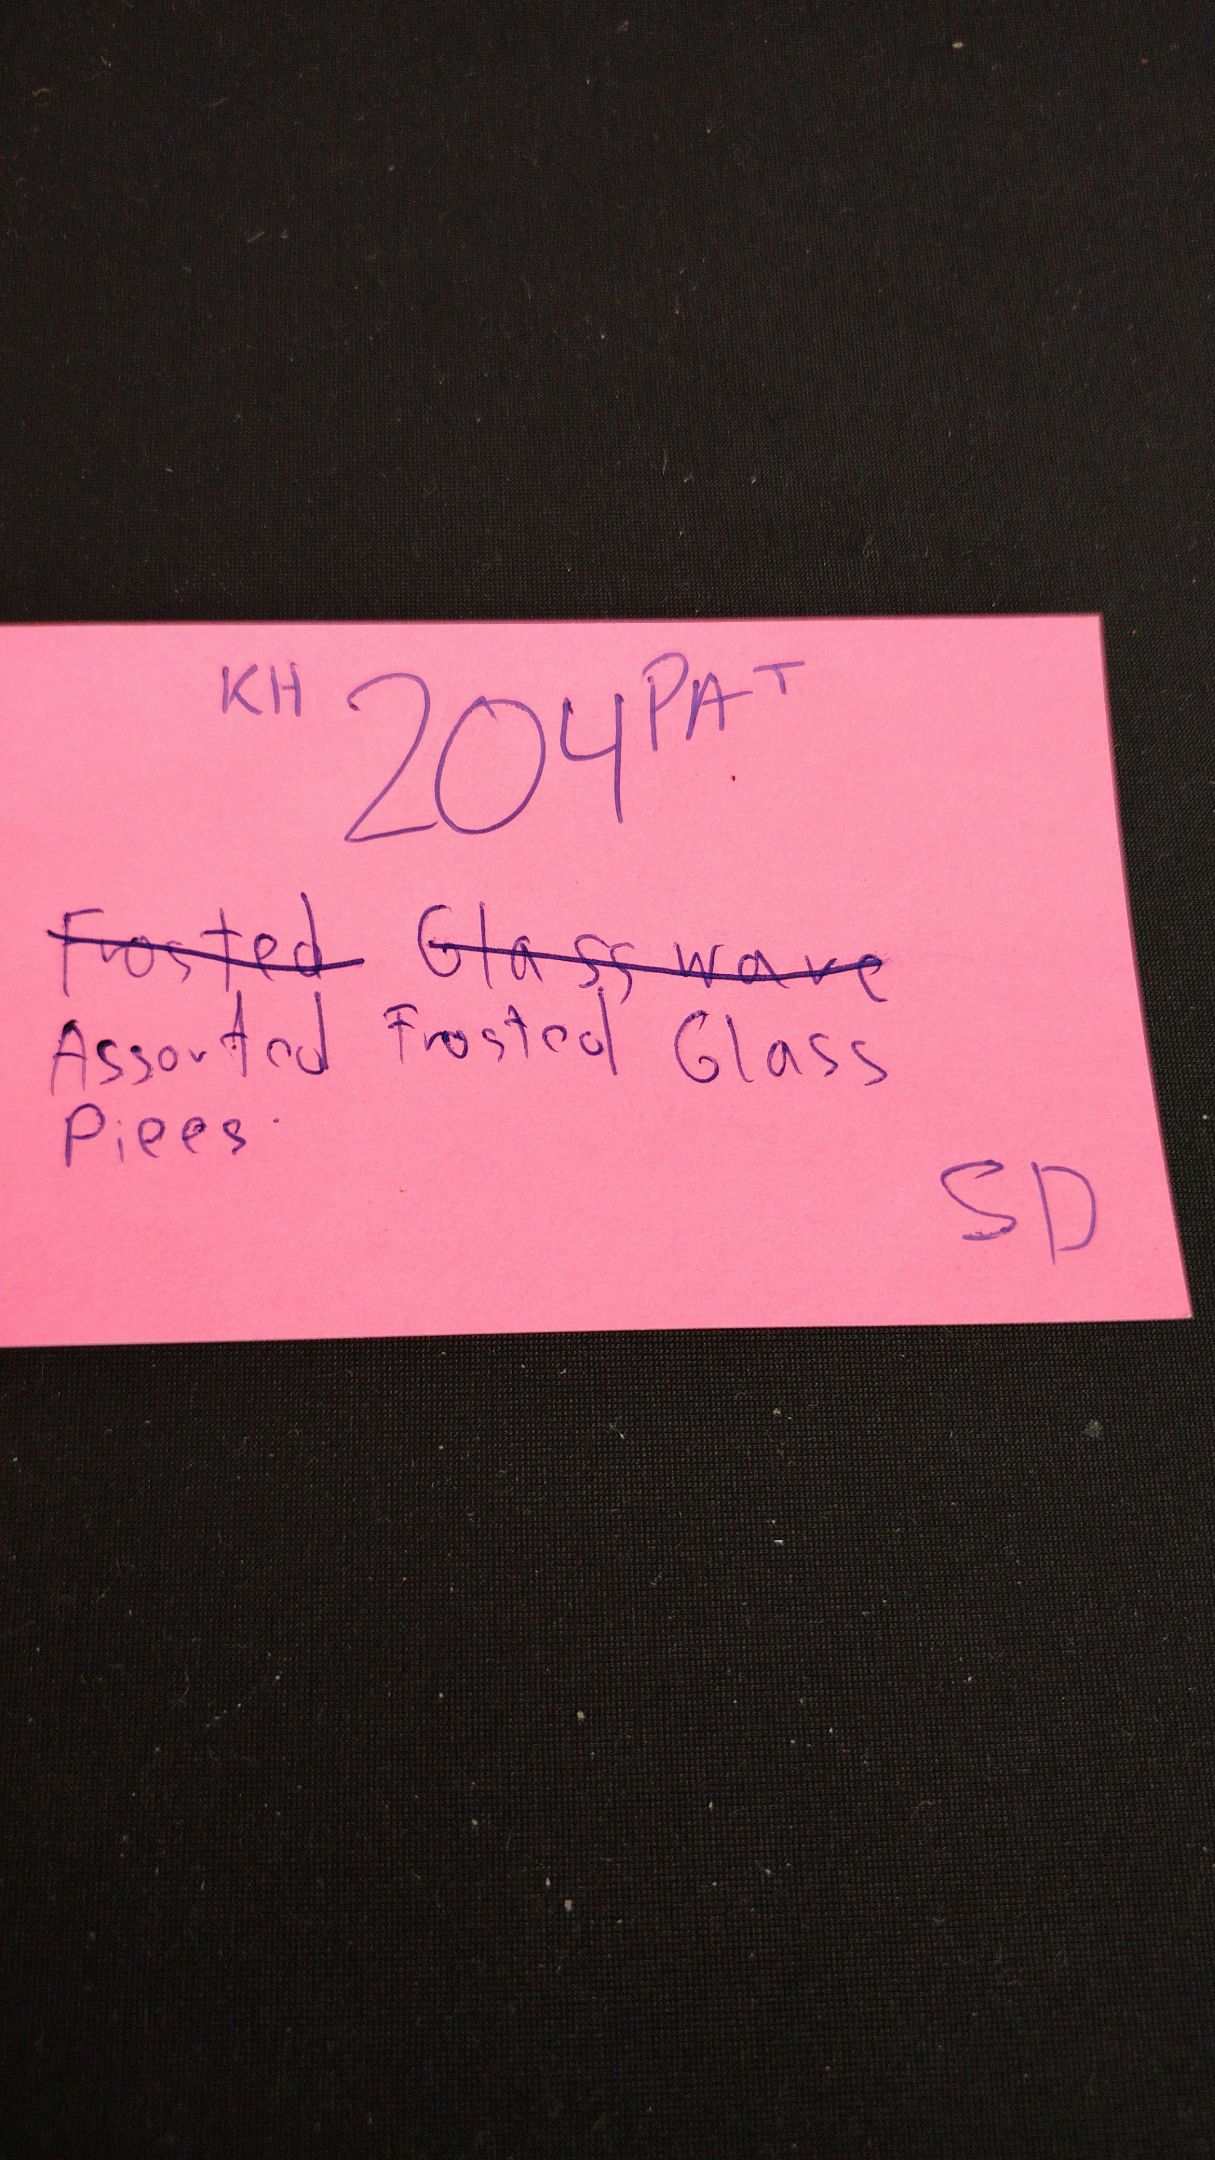 KH 204 PAT
Frosted Glassware
Assorted Frosted Glass
Piees.
SD